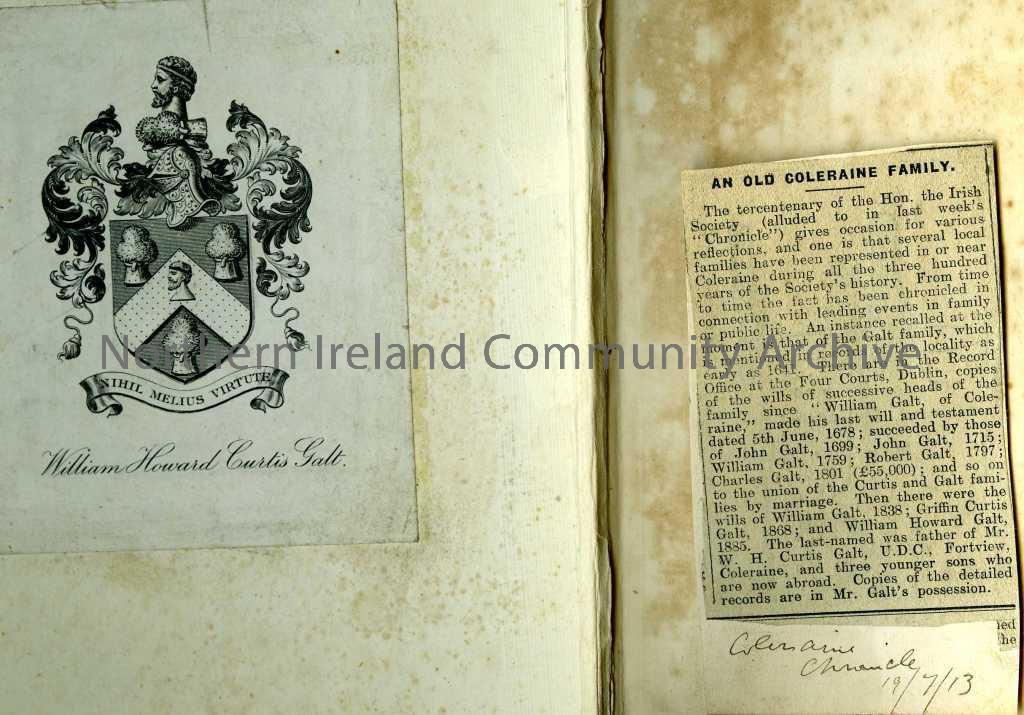 NIHIL MELIUS VIRTUTE
William Howard Curtis Galt.
AN OLD COLERAINE FAMILY.
The tercentenary of the Hon. the Irish
Society (alluded to in last week's
"Chronicle") gives occasion for various
reflections, and one is that several local
families have been represented in or near
Coleraine during all the three hundred
years of the Society's history. From time
to time the fact has been chronicled in
connection with leading events in family
or public life. An instance recalled at the
moment is that of the Galt family, which
is mentioned in records of the locality as
early as 164 There are in the Record
Office at the Four Courts, Dublin, copies
of the wills of successive heads of the
family since "William Galt, of Cole-
raine," made his last will and testament
dated 5th June, 1678; succeeded by those
of John Galt, 1699; John Galt, 1715;
William Galt, 1759; Robert Galt, 1797;
Charles Galt, 1801 (£55,000); and so on
to the union of the Curtis and Galt fami-
lies by marriage. Then there were the
wills of William Galt, 1838; Griffin Curtis
Galt, 1868; and William Howard Galt,
1885. The last-named was father of Mr.
W. H. Curtis Galt, U.D.C., Fortview,
Coleraine, and three younger sons who
are now abroad. Copies of the detailed
records are in Mr. Galt's possession.
ned
he
Coleraine
Chronicle
19/7/13
Northern Ireland Community Archive